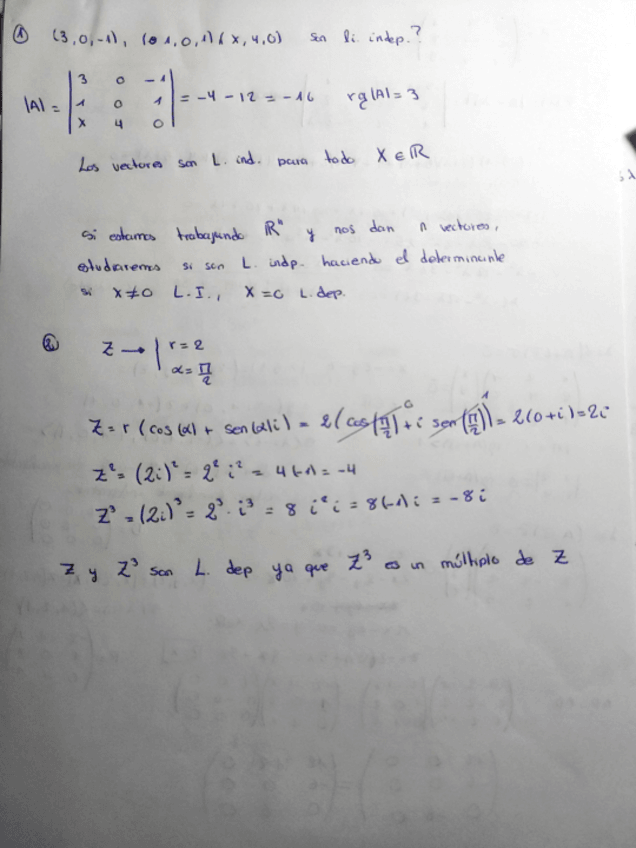 ① (3,0,-1), (1,0,1) (x,4,0) son li. indep.?
|A| = | 3 0 -1 |
| 1 0 1 | = -4 - 12 = -16 rg|A| = 3
| x 4 0 |
Los vectores son L. ind. para todo X ∈ ℝ
Si estamos trabajando ℝⁿ y nos dan n vectores,
estudiaremos si son L. indp. haciendo el determinante
si X≠0 L.I., X=0 L.dep.
② Z → | r = 2
α = π/2
Z = r (cos(α) + sen(α)i) = 2(cos(π/2) 0 + i sen(π/2) 1) = 2(0+i) = 2i
Z² = (2i)² = 2² i² = 4(-1) = -4
Z³ = (2i)³ = 2³ · i³ = 8 i² i = 8(-1)i = -8i
Z y Z³ son L. dep ya que Z³ es un múltiplo de Z